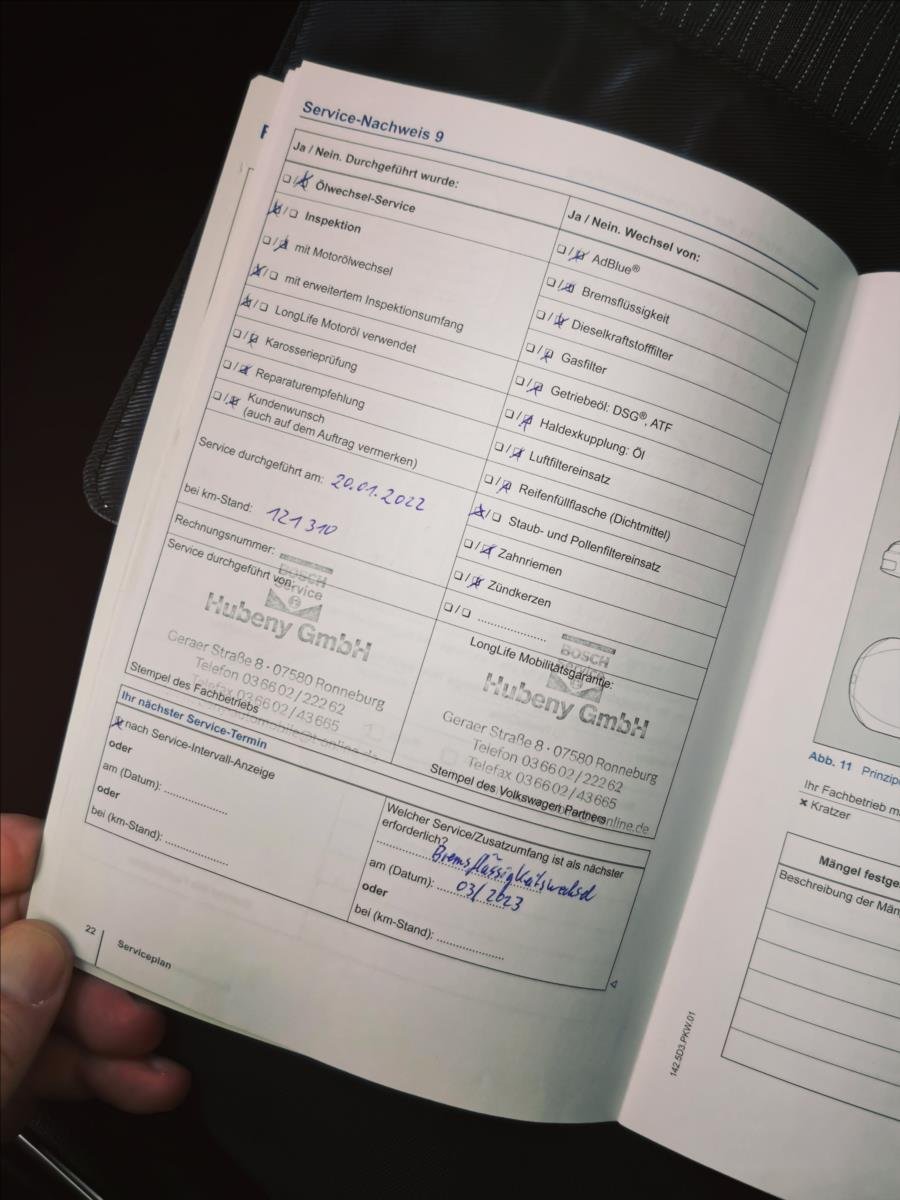 Service-Nachweis 9
Ja / Nein. Durchgeführt wurde:
Ölwechsel-Service
Inspektion
mit Motorölwechsel
mit erweitertem Inspektionsumfang
LongLife Motoröl verwendet
Karosserieprüfung
Reparaturempfehlung
Kundenwunsch
(auch auf dem Auftrag vermerken)
Service durchgeführt am: 20.01.2022
bei km-Stand: 121 310
Rechnungsnummer:
Service durchgeführt von:
BOSCH
Service
Hubeny GmbH
Geraer Straße 8 · 07580 Ronneburg
Telefon 03 66 02 / 222 62
Telefax 03 66 02 / 43 665
Stempel des Fachbetriebs
Ja / Nein. Wechsel von:
AdBlue®
Bremsflüssigkeit
Dieselkraftstofffilter
Gasfilter
Getriebeöl: DSG®, ATF
Haldexkupplung: Öl
Luftfiltereinsatz
Reifenfüllflasche (Dichtmittel)
Staub- und Pollenfiltereinsatz
Zahnriemen
Zündkerzen
LongLife Mobilitätsgarantie:
BOSCH
Service
Hubeny GmbH
Geraer Straße 8 · 07580 Ronneburg
Telefon 03 66 02 / 222 62
Telefax 03 66 02 / 43 665
Stempel des Volkswagen Partners
Ihr nächster Service-Termin
nach Service-Intervall-Anzeige
oder
am (Datum):
oder
bei (km-Stand):
Welcher Service/Zusatzumfang ist als nächster
erforderlich?
Bremsflüssigkeitswechsel
am (Datum): 03/2023
oder
bei (km-Stand):
22
Serviceplan
Abb. 11
Ihr Fachbetrieb
Kratzer
Mängel
Beschreibung der
142.5D3.PKW.01